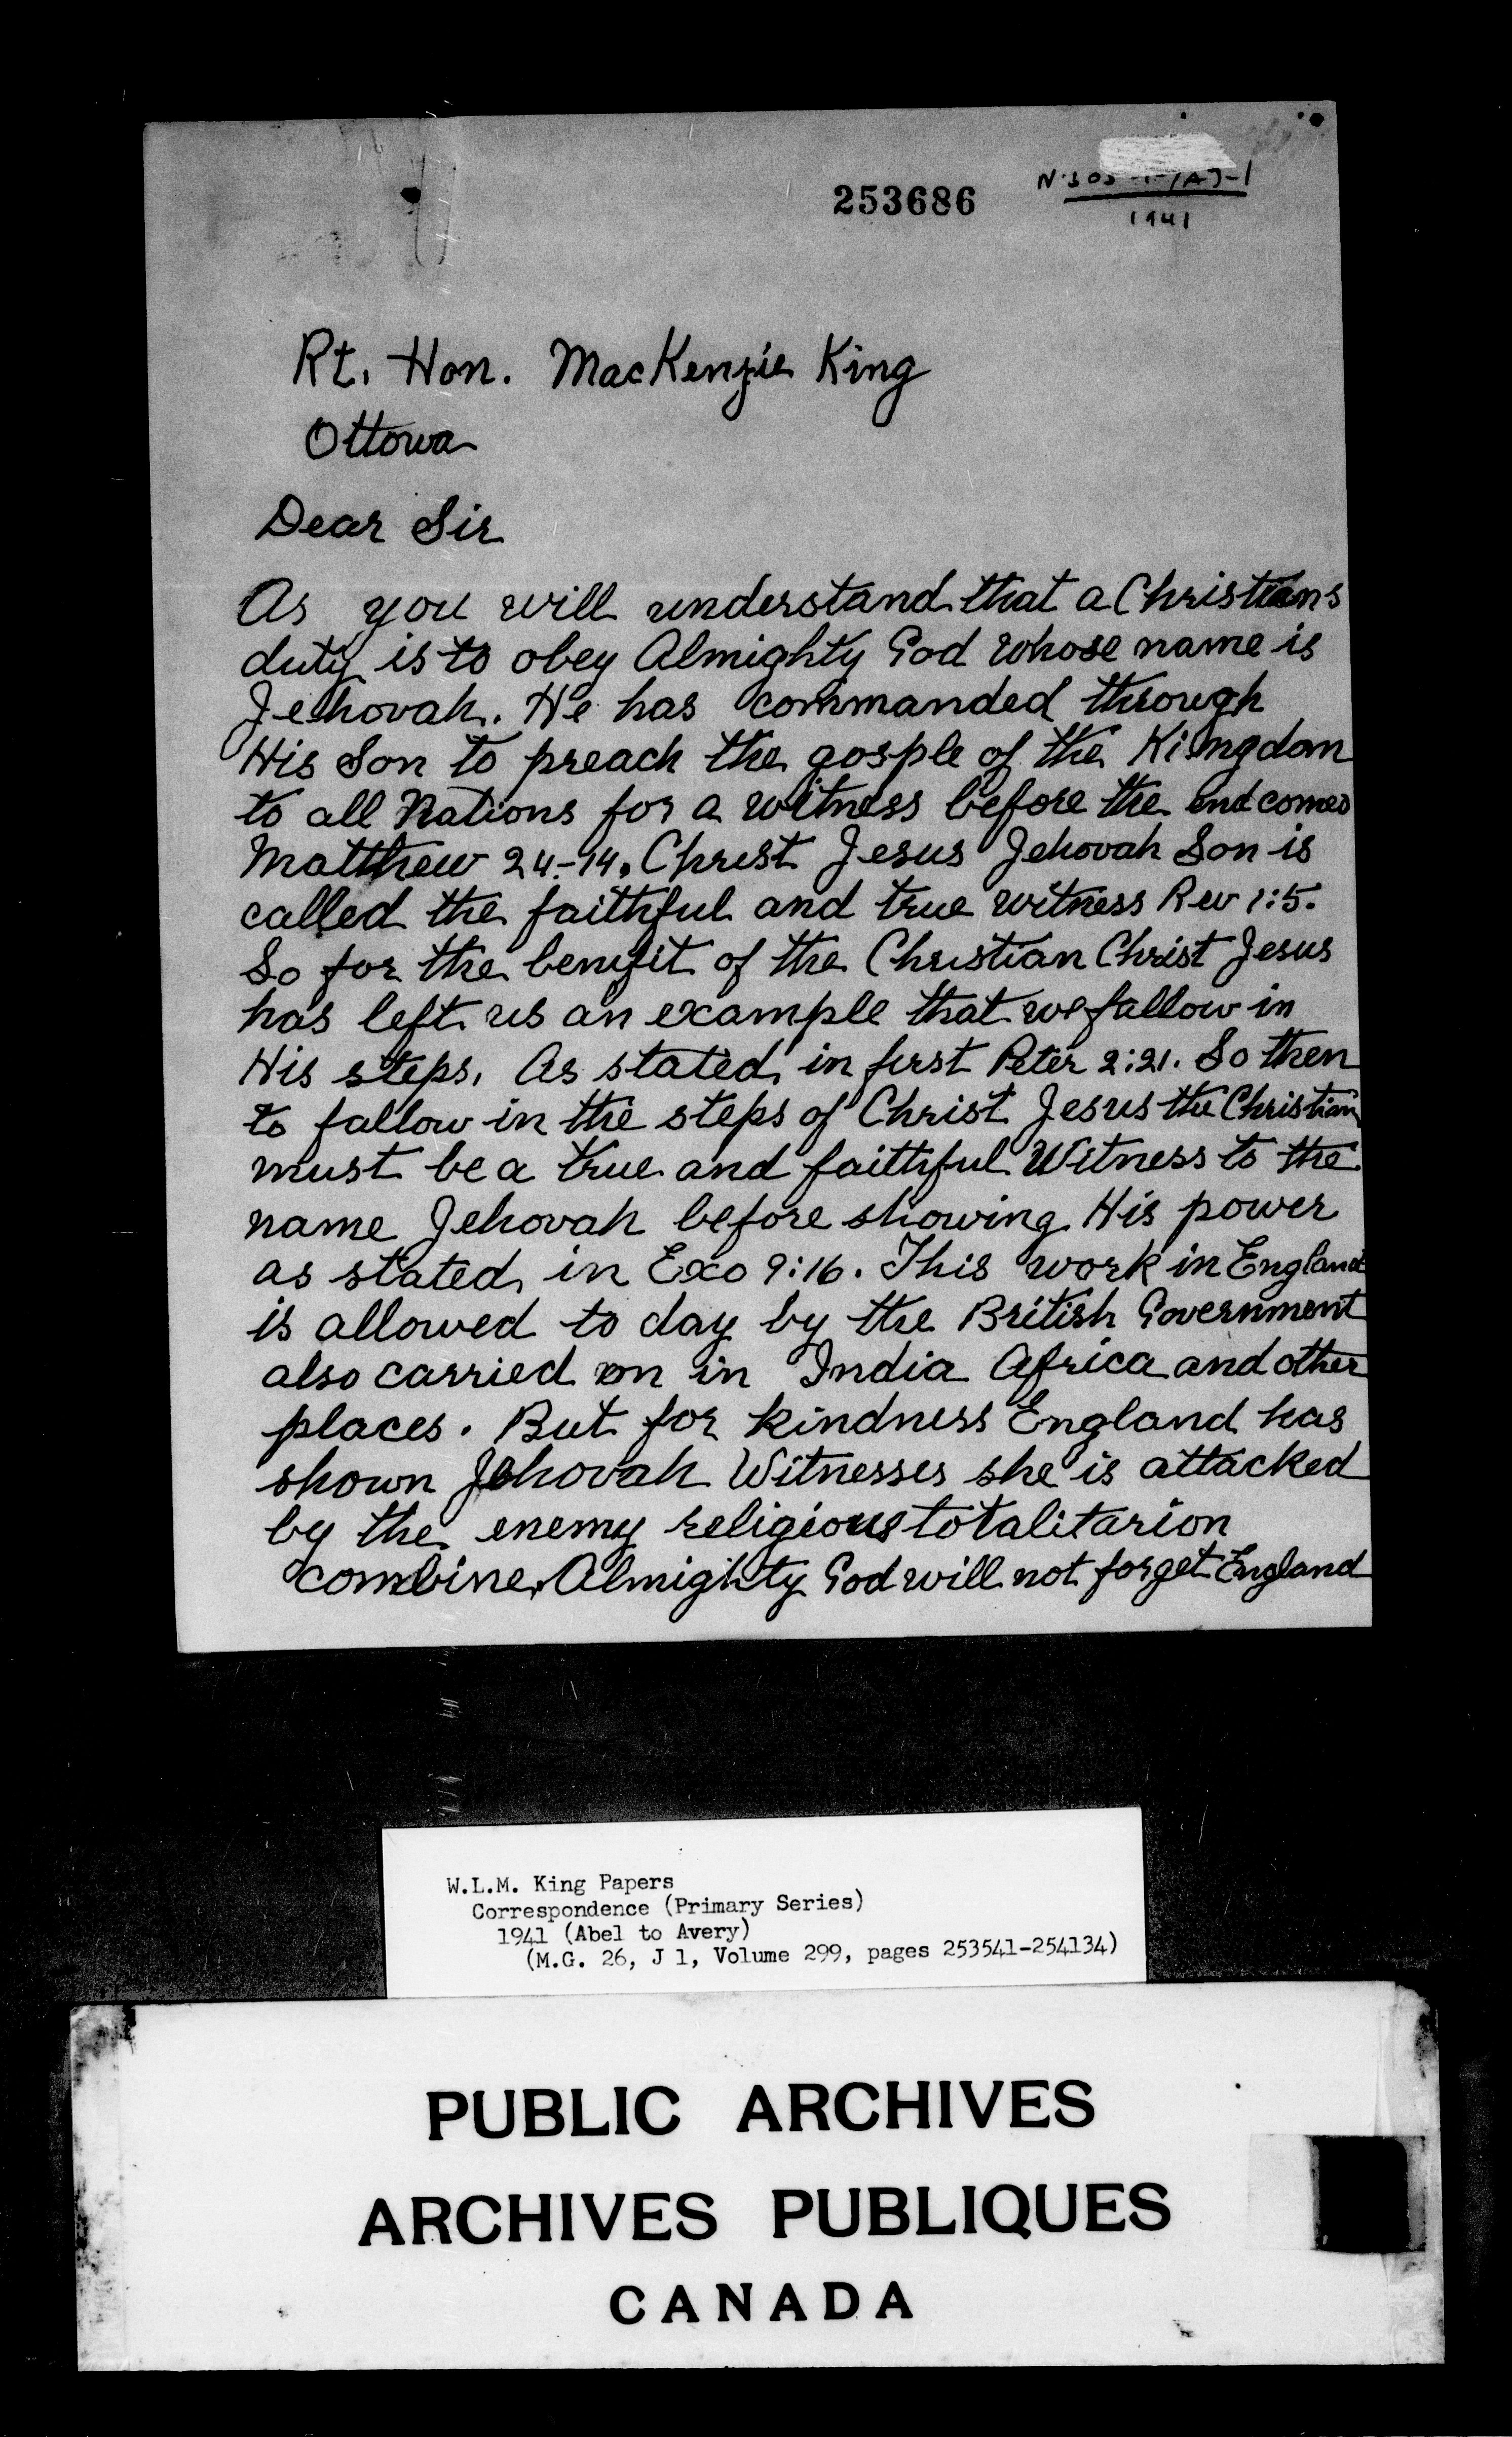 253686
1941
Rt. Hon. MacKenzie King
Ottowa
Dear Sir
As you will understand that a Christians
duty is to obey Almighty God whose name is
Jehovah. He has commanded through
His Son to preach the gosple of the Kingdom
to all Nations for a witness before the end comes
Matthew 24-14. Christ Jesus Jehovah Son is
called the faithful and true witness Rev 1:5.
So for the benifit of the Christian Christ Jesus
has left us an example that we fallow in
His steps. As stated in first Peter 2:21. So then
to fallow in the steps of Christ Jesus the Christian
must be a true and faithful Witness to the
name Jehovah before showing His power
as stated in Exo 9:16. This work in England
is allowed to day by the British Government
also carried on in India Africa and other
places. But for kindness England has
shown Jehovah Witnesses she is attacked
by the enemy religious totalitarion
combine. Almighty God will not forget England
W.L.M. King Papers
Correspondence (Primary Series)
1941 (Abel to Avery)
(M.G. 26, J 1, Volume 299, pages 253541-254134)
PUBLIC ARCHIVES
ARCHIVES PUBLIQUES
CANADA